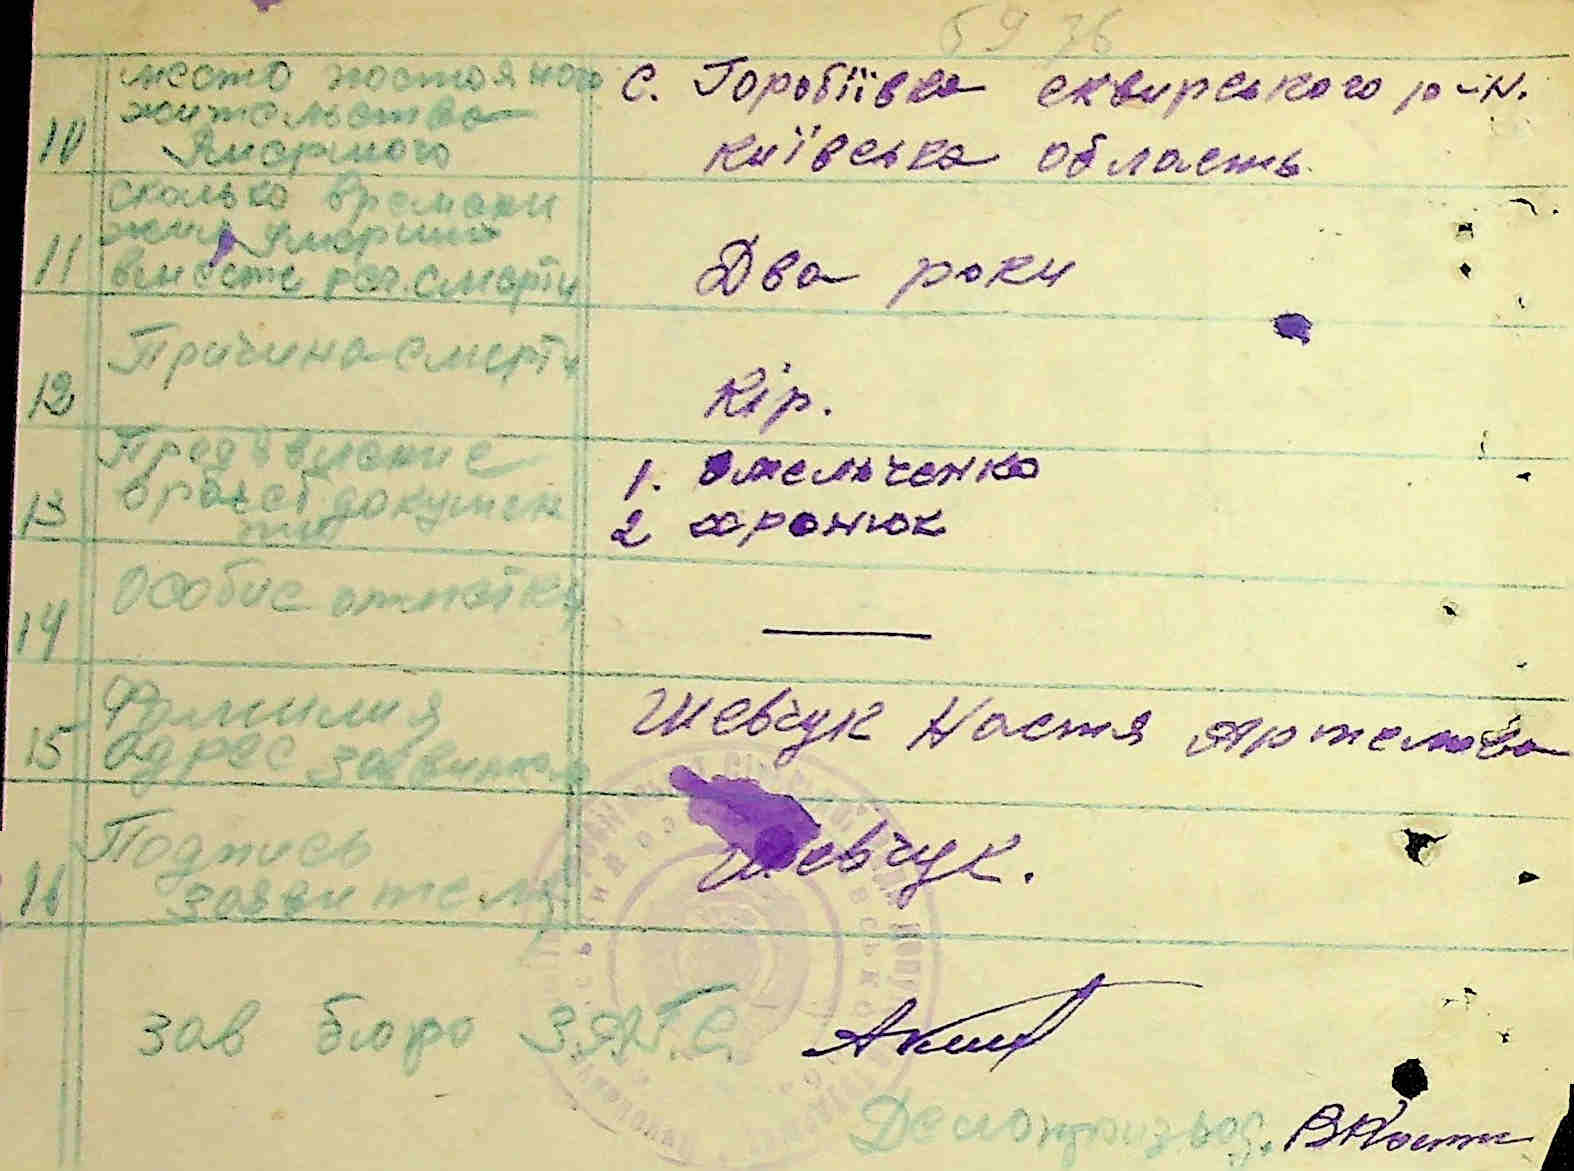 59 76
10 место постояного
жительства
Умармого
с. Горобіївка сквирського р-н.
київська область
11 сколько времени
жил умарший
вместе пос. смерти
Два роки
12 Причина смерти
Кір.
13 Предъвление
врачеб документ
1. Омельченко
2 Фронюк
14 особие отметки
15 Фамилия
адрес заявител
Шевчук Настя Артемівна
16 Подпись
заявителя
Шевчук.
зав бюро З.А.Г.С.
Делопроизвод.